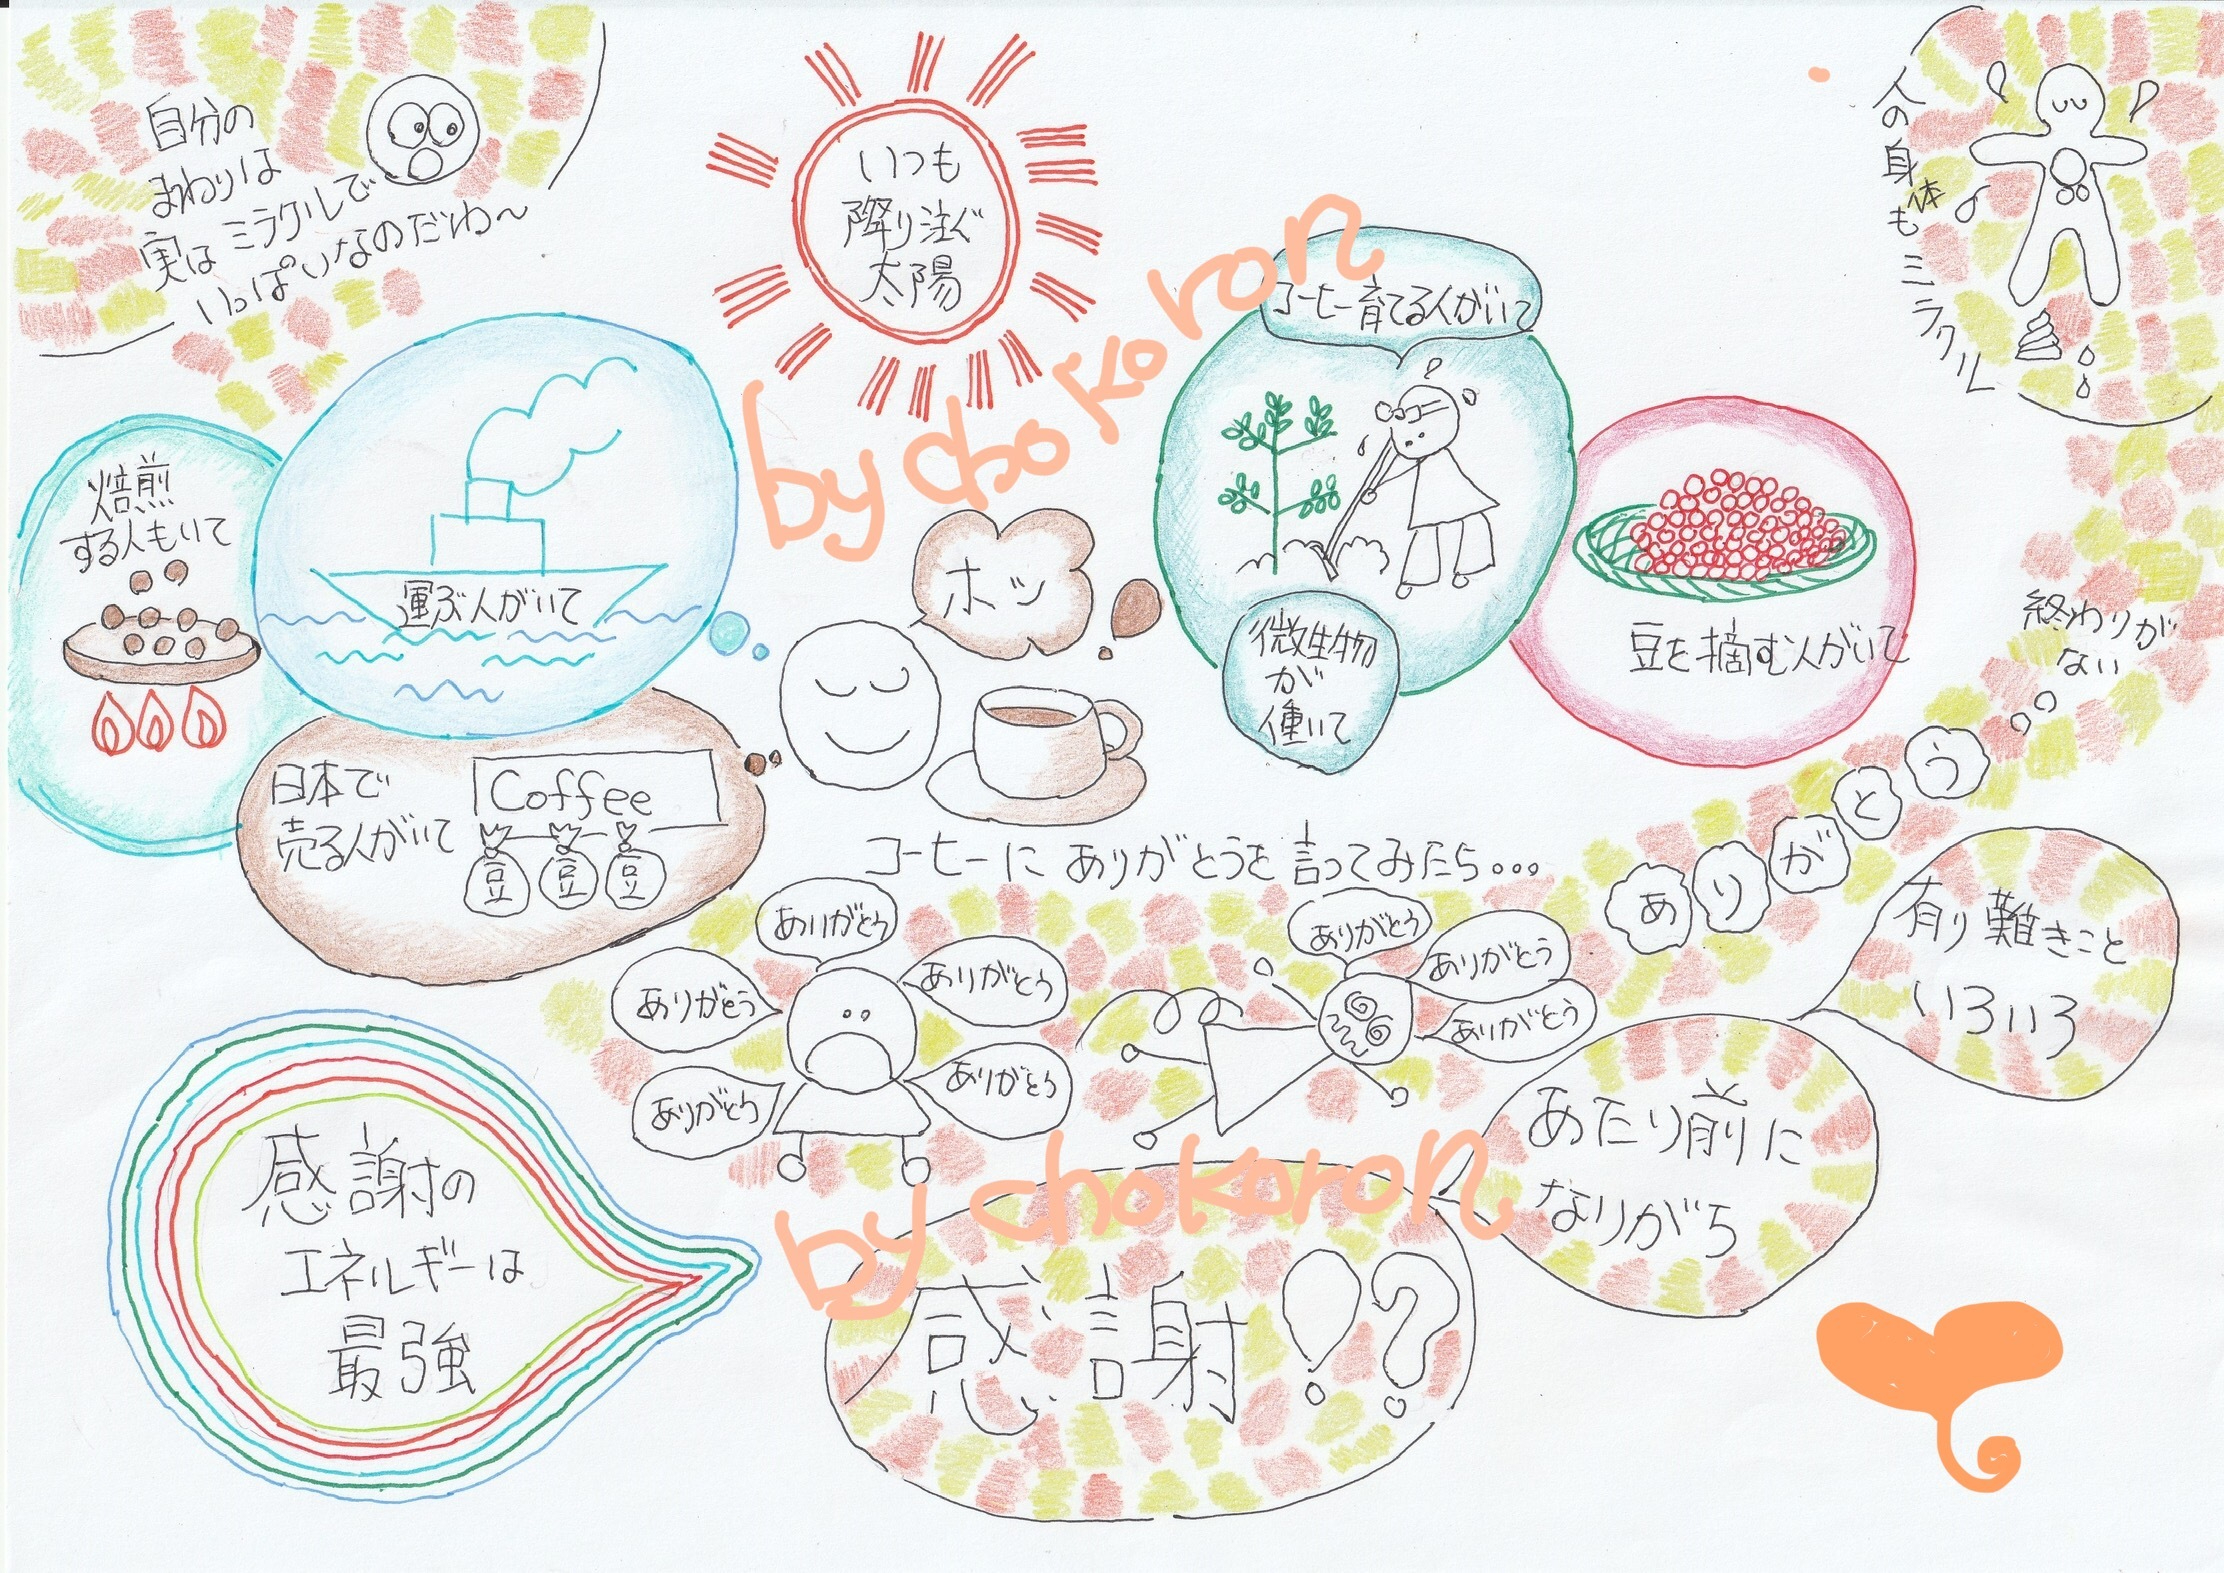 自分の
まわりは
実は ミラクルで
いっぱいなのだね〜
いつも
降り注ぐ
太陽
人の身体もミラクル
by chokoron
コーヒー育てる人がいて
微生物
が
働いて
豆を摘む人がいて
焙煎
する人もいて
運ぶ人がいて
日本で
売る人がいて
Coffee
豆 豆 豆
ホッ
終わりが
ない
ありがとう
コーヒーに ありがとうを 言ってみたら...
ありがとう
ありがとう
ありがとう
ありがとう
ありがとう
ありがとう
ありがとう
ありがとう
有り難きこと
いろいろ
あたり前に
なりがち
感謝の
エネルギーは
最強
by chokoron
感謝!?